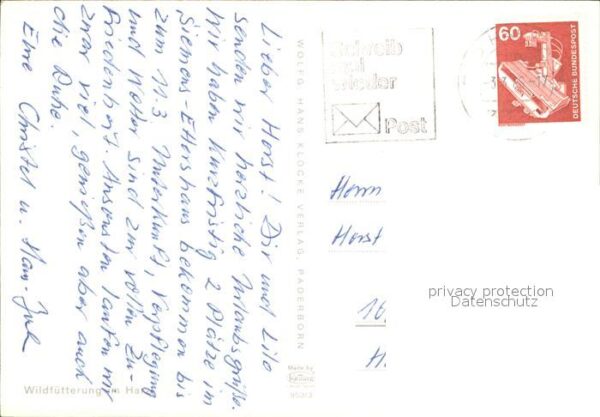 Lieber Horst! Dir und Lilo
senden wir herzliche Urlaubsgrüße.
Wir haben kurzfristig 2 Plätze im
Siemens-Ettershaus bekommen bis
zum 11.3. Unterkunft, Verpflegung
und Wetter sind zur vollen Zu-
friedenheit. Ansonsten laufen wir
zwar viel, genießen aber auch
die Ruhe.
Eure Christel u.
WOLFG. HANS KLOCKE VERLAG, PADERBORN
Schreib
mal
wieder
Post
60
DEUTSCHE BUNDESPOST
Herrn
Horst
16
H
privacy protection
Datenschutz
Made by
Wildfütterung im Ha